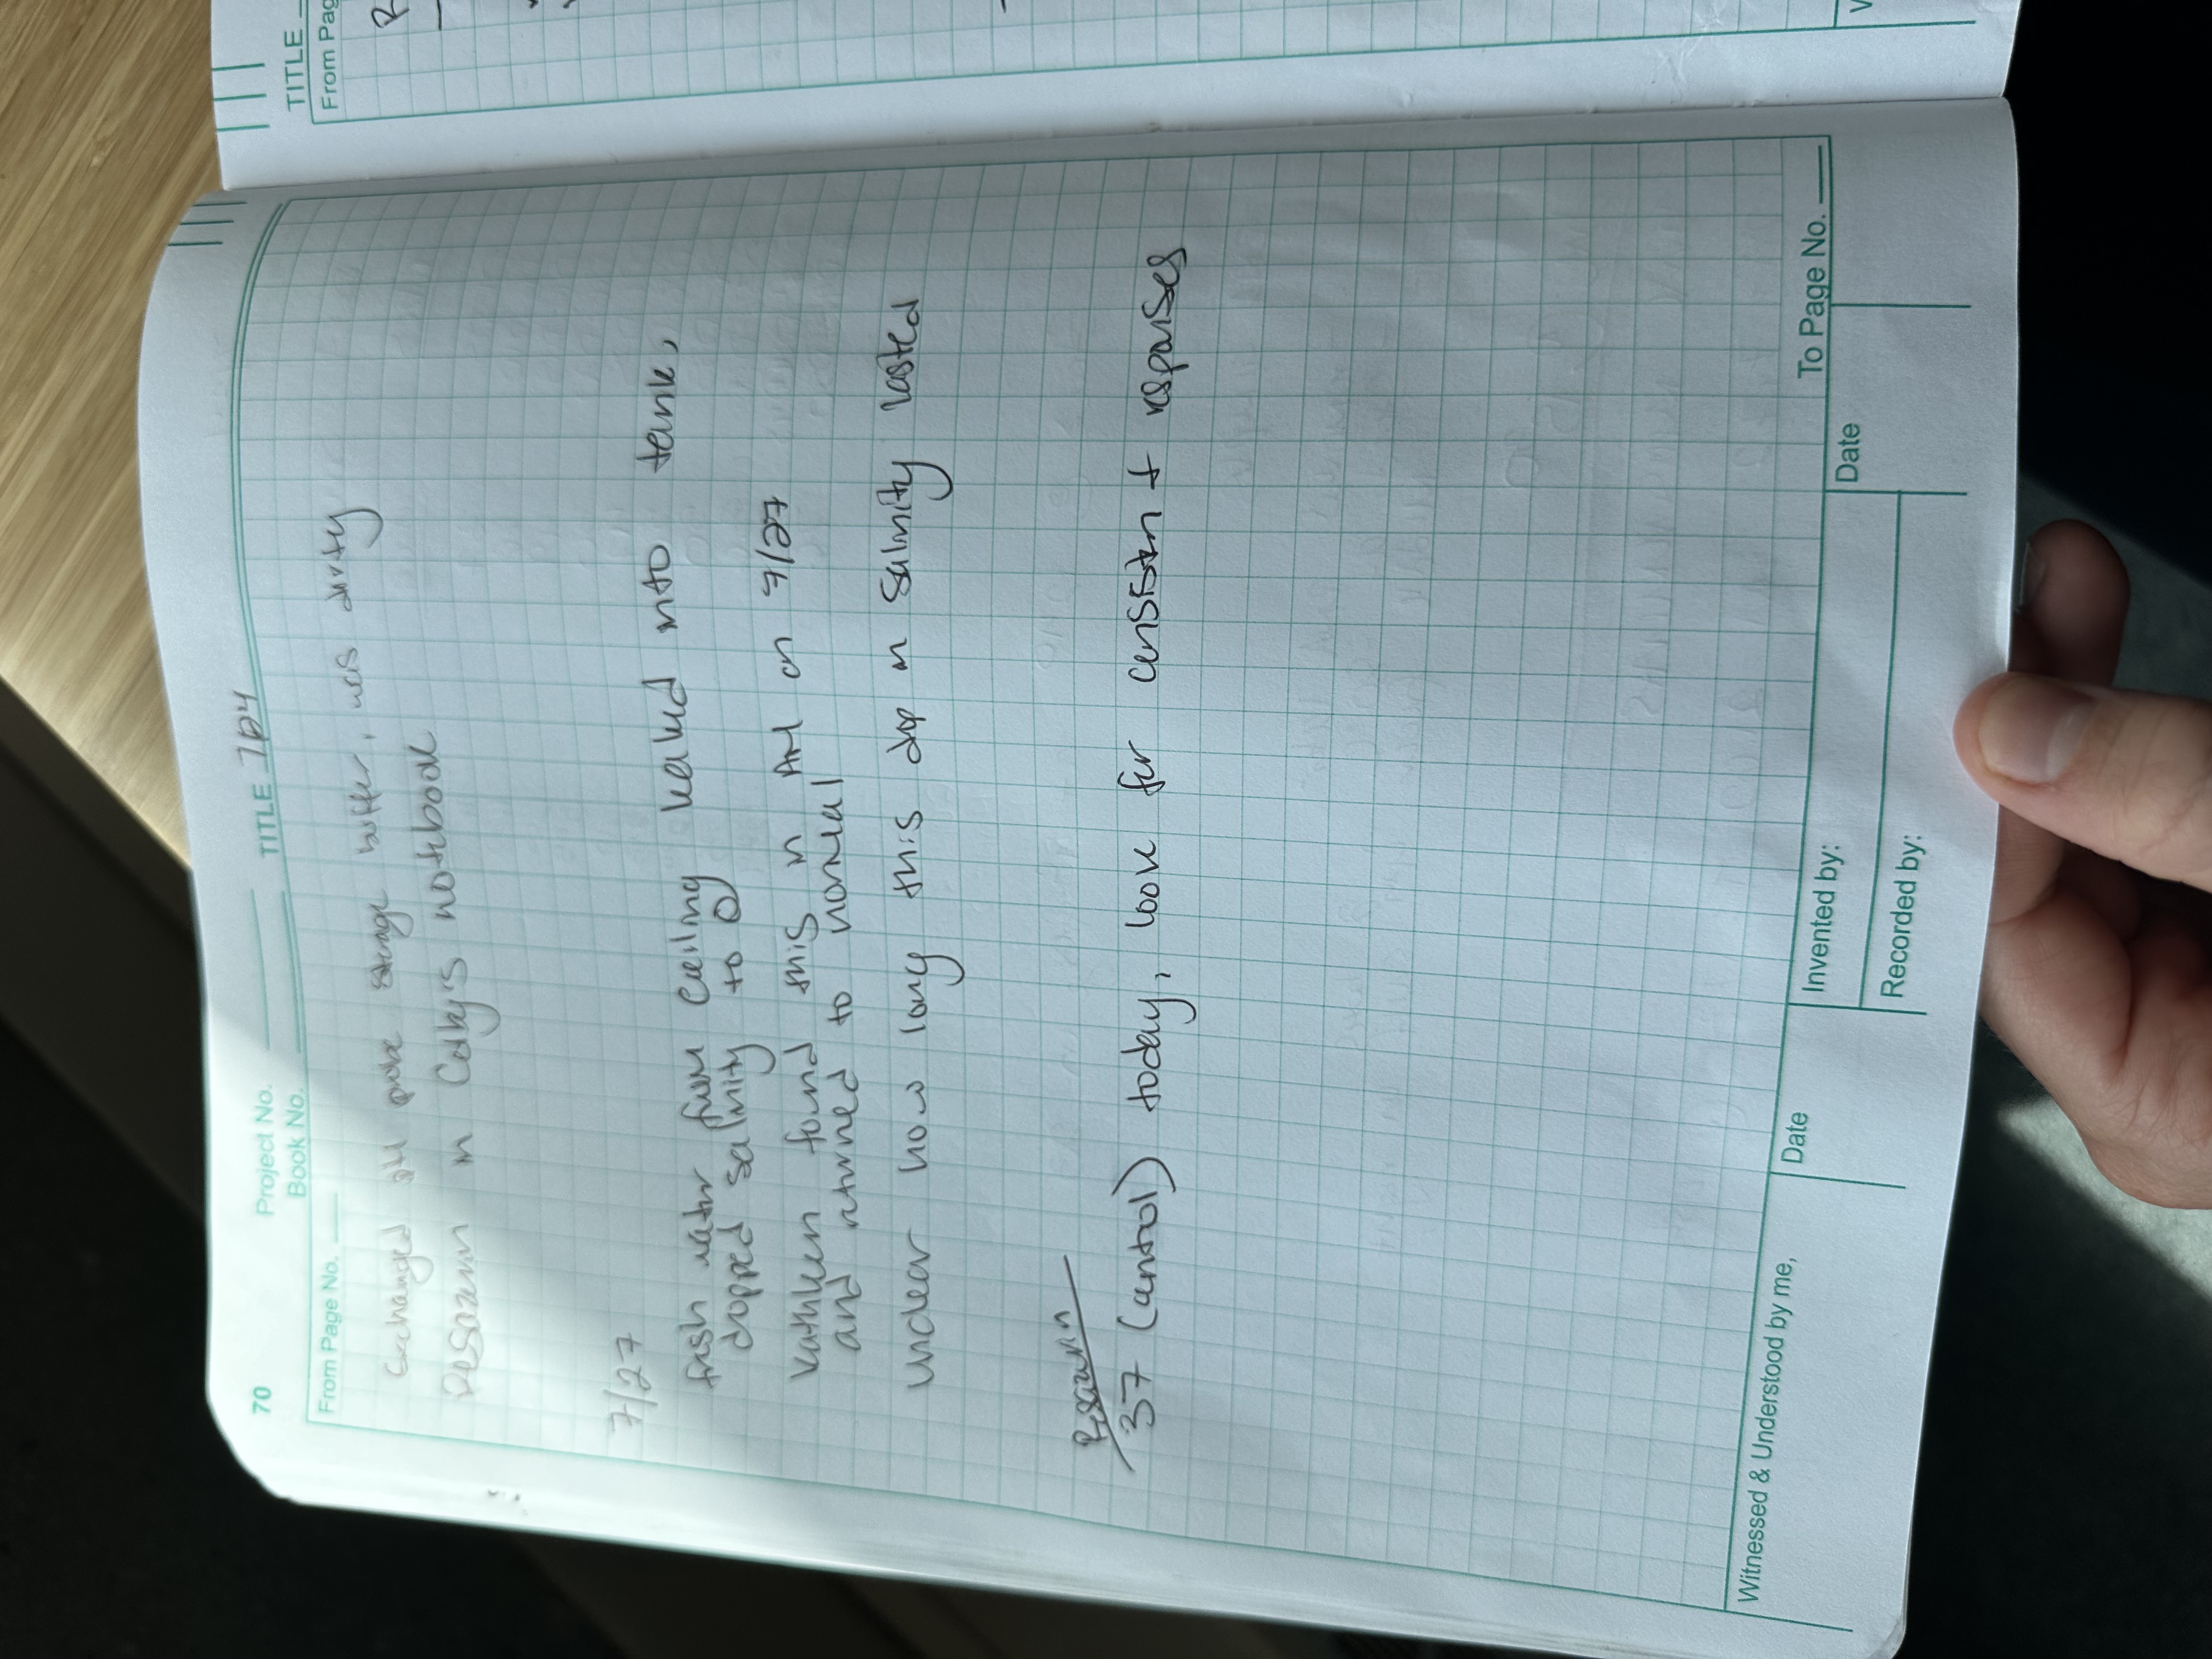 70
Project No.
TITLE
Book No.
From Page No.
Exchanged pH probe storage buffer, was dirty
Resazurin in notebook
7/27
fresh water from ceiling leaked into tank,
dropped salinity to 0
Kathleen found this in AM on 7/27
and returned to normal
unclear how long this drop in salinity lasted
Resazurin
37 (control) today, look for consistent responses
To Page No.
Witnessed & Understood by me,
Date
Invented by:
Date
Recorded by:
TITLE
From Pag
R